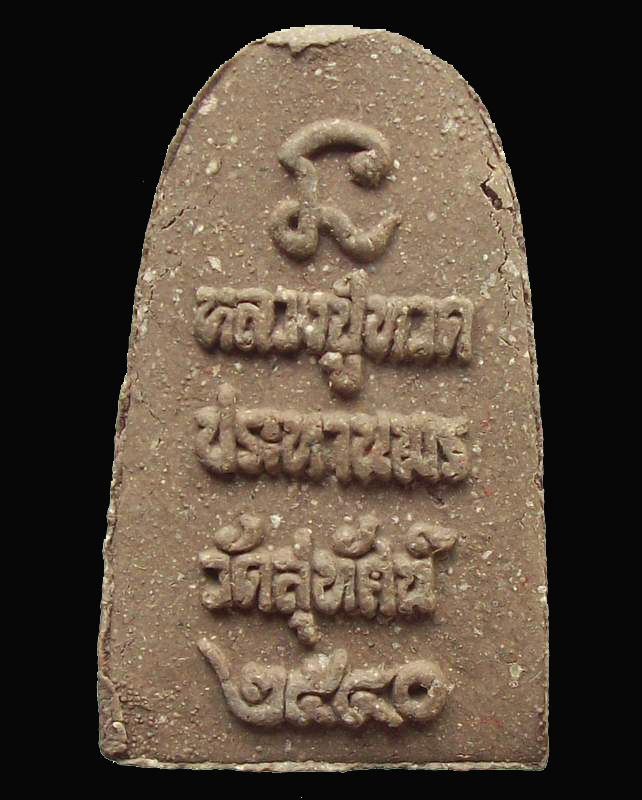 หลวงปู่ทวด
ประทานพร
วัดสุทัศน์
๒๕๔๐